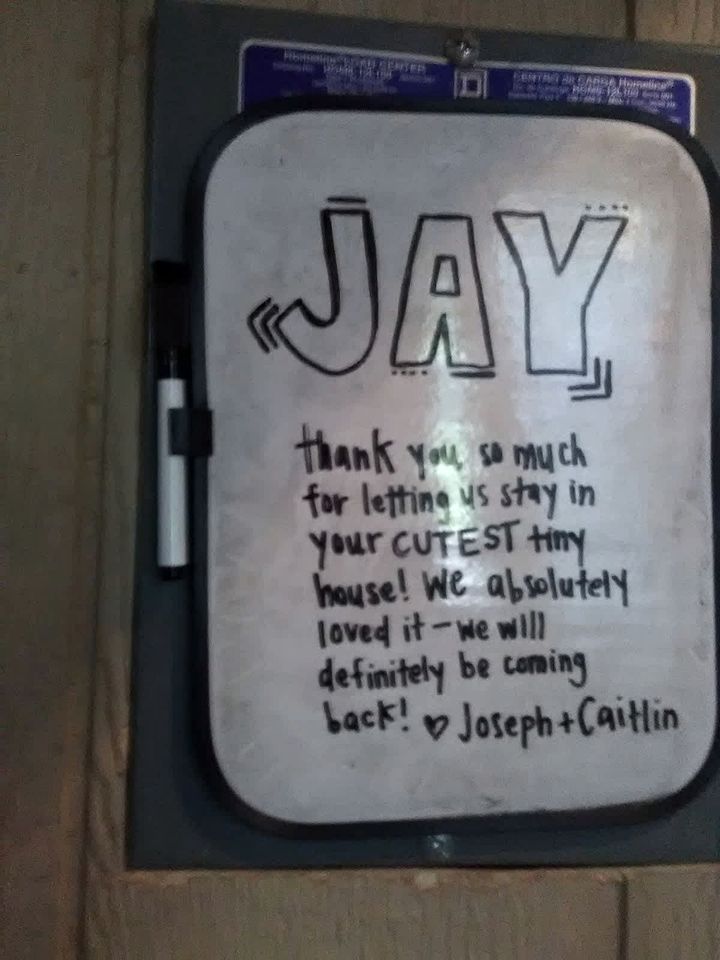 Homeline LOAD CENTER
CENTRO de CARGA Homeline
JAY
thank you so much
for letting us stay in
your CUTEST tiny
house! We absolutely
loved it – we will
definitely be coming
back! ♥ Joseph + Caitlin